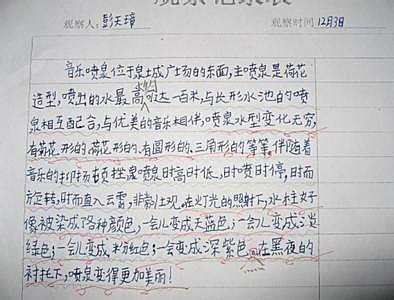 观察记录表
观察人：彭天瑞 观察时间 12月3日
音乐喷泉位于泉城广场的东面，主喷泉是荷花
造型，喷出的水最高约可达一百米，与长形水池的喷
泉相互配合，与优美的音乐相伴，喷泉水型变化无穷，
有菊花形的、荷花形的、有圆形的、三角形的等等。伴随着
音乐的抑扬顿挫喷泉时高时低，时喷时停，时而
旋转，时而直入云霄，非常壮观。在灯光的照射下，水柱好
像被染成各种颜色，一会儿变成天蓝色；一会儿变成淡
绿色；一会儿变成粉红色；一会变成深紫色。在黑夜的
衬托下，喷泉变得更加美丽！